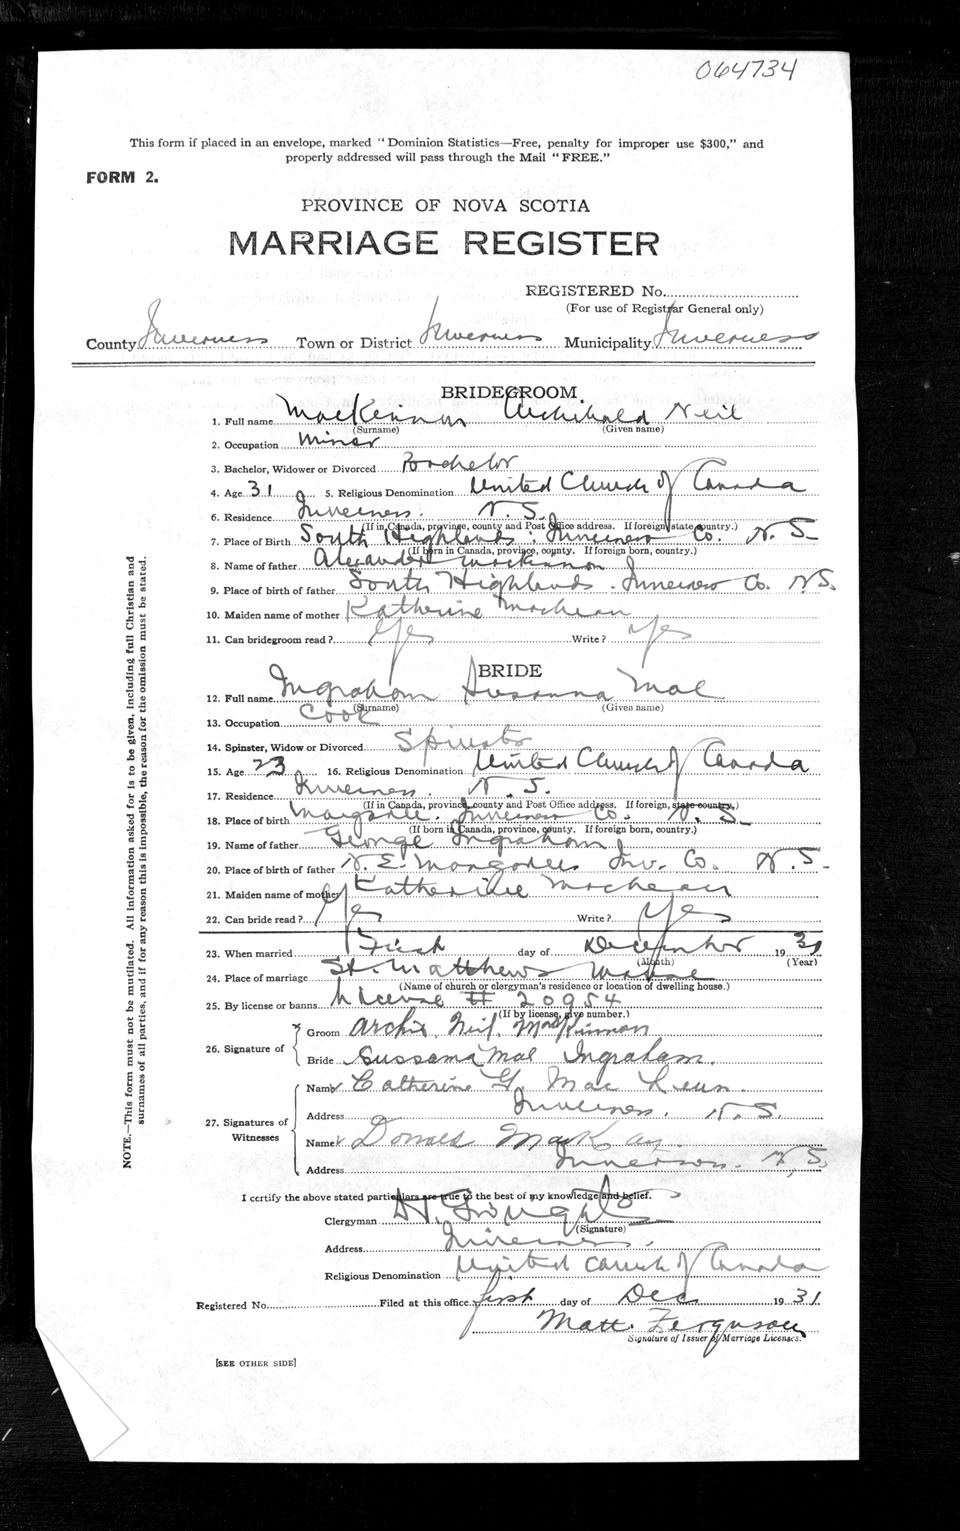 064734
This form if placed in an envelope, marked "Dominion Statistics—Free, penalty for improper use $300," and
properly addressed will pass through the Mail "FREE."
FORM 2.
PROVINCE OF NOVA SCOTIA
MARRIAGE REGISTER
REGISTERED No.
(For use of Registrar General only)
County Inverness Town or District Inverness Municipality Inverness
BRIDEGROOM.
1. Full name MacKinnon Archibald Neil
(Surname) (Given name)
2. Occupation Miner
3. Bachelor, Widower or Divorced Bachelor
4. Age 31 5. Religious Denomination United Church of Canada
6. Residence Inverness. N.S.
(If in Canada, province, county and Post Office address. If foreign state country.)
7. Place of Birth South Highlands. Inverness Co. N.S.
(If born in Canada, province, county. If foreign born, country.)
8. Name of father Alexander MacKinnon
9. Place of birth of father South Highlands. Inverness Co. N.S.
10. Maiden name of mother Katherine MacLean
11. Can bridegroom read? Yes Write? Yes
BRIDE
12. Full name Ingraham Susanna Mae
(Surname) (Given name)
13. Occupation Cook
14. Spinster, Widow or Divorced Spinster
15. Age 23 16. Religious Denomination United Church of Canada
17. Residence Inverness. N.S.
(If in Canada, province, county and Post Office address. If foreign, state country,)
18. Place of birth Margaree. Inverness Co. N.S.
(If born in Canada, province, county. If foreign born, country.)
19. Name of father George Ingraham
20. Place of birth of father N.E. Margaree Inv. Co. N.S.
21. Maiden name of mother Katherine MacLean
22. Can bride read? Yes Write? Yes
23. When married First day of December 1931
(Month) (Year)
24. Place of marriage St. Matthews Manse
(Name of church or clergyman's residence or location of dwelling house.)
25. By license or banns License # 20954
(If by license, give number.)
26. Signature of
Groom Archie Neil MacKinnon
Bride Sussana Mae Ingraham.
27. Signatures of
Witnesses
Name Catherine G. MacLean.
Address Inverness. N.S.
Name Donald MacKay
Address Inverness. N.S.
I certify the above stated particulars are true to the best of my knowledge and belief.
Clergyman
(Signature)
Address Inverness.
Religious Denomination United Church of Canada
Registered No. Filed at this office first day of Dec 1931.
Matt. Ferguson
Signature of Issuer of Marriage Licenses.
[SEE OTHER SIDE]
NOTE.—This form must not be mutilated. All information asked for is to be given, including full Christian and
surnames of all parties, and if for any reason this is impossible, the reason for the omission must be stated.